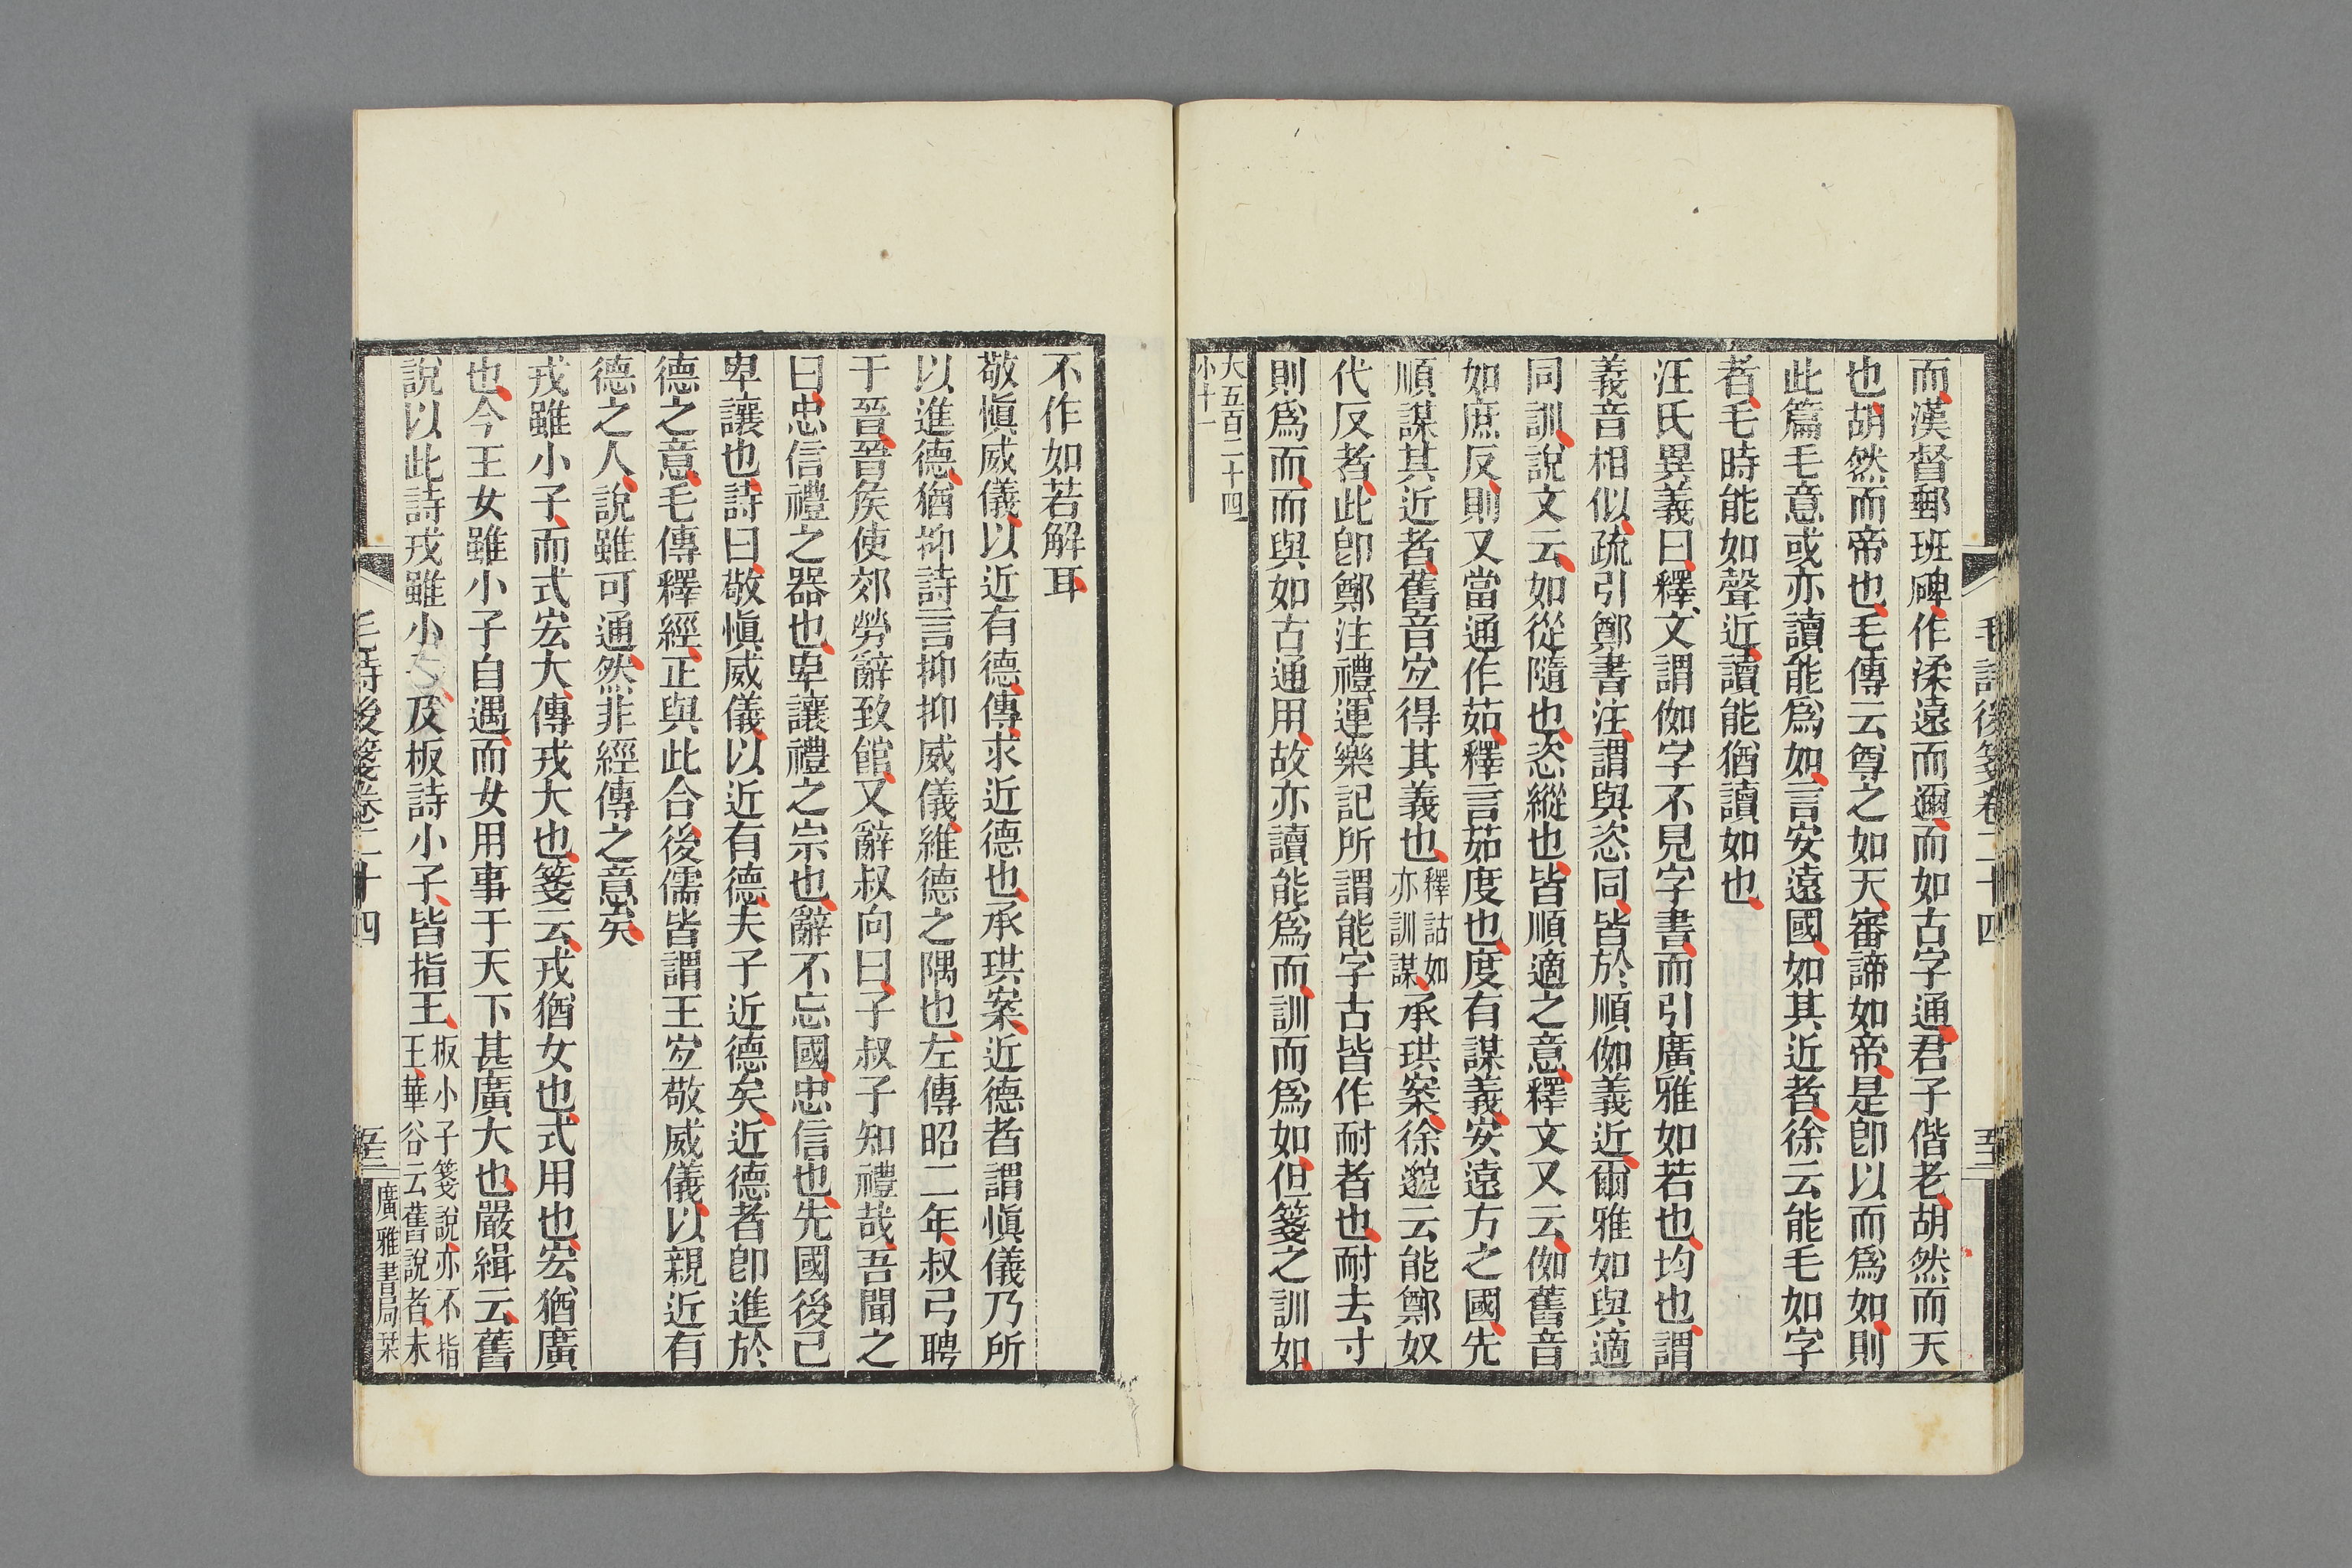 毛詩後箋卷二十四
而漢督郵班碑作渘遠而邇而如古字通君子偕老胡然而天
也胡然而帝也毛傳云尊之如天審諦如帝是卽以而爲如則
此篇毛意或亦讀能爲如言安遠國如其近者徐云能毛如字
者毛時能如聲近讀能猶讀如也
汪氏異義曰釋文謂伽字不見字書而引廣雅如若也均也謂
義音相似疏引鄭書注謂與恣同皆於順伽義近爾雅如與適
同訓說文云如從隨也恣縱也皆順適之意釋文又云伽舊音
如庶反則又當通作茹釋言茹度也度有謀義安遠方之國先
順謀其近者舊音宐得其義也釋詁如亦訓謀承珙案徐邈云能鄭奴
代反者此卽鄭注禮運樂記所謂能字古皆作耐者也耐去寸
則爲而而與如古通用故亦讀能爲而訓而爲如但箋之訓如
大五百二十四
小十一
不作如若解耳
敬愼威儀以近有德傳求近德也承珙案近德者謂愼儀乃所
以進德猶抑詩言抑抑威儀維德之隅也左傳昭二年叔弓聘
于晉晉矦使郊勞辭致館又辭叔向曰子叔子知禮哉吾聞之
曰忠信禮之器也卑讓禮之宗也辭不忘國忠信也先國後己
卑讓也詩曰敬愼威儀以近有德夫子近德矣近德者卽進於
德之意毛傳釋經正與此合後儒皆謂王宐敬威儀以親近有
德之人說雖可通然非經傳之意矣
戎雖小子而式宏大傳戎大也箋云戎猶女也式用也宏猶廣
也今王女雖小子自遇而女用事于天下甚廣大也嚴緝云舊
說以此詩戎雖小子及板詩小子皆指王板小子箋說亦不指王華谷云舊說者未
毛詩後箋卷二十四
廣雅書局栞